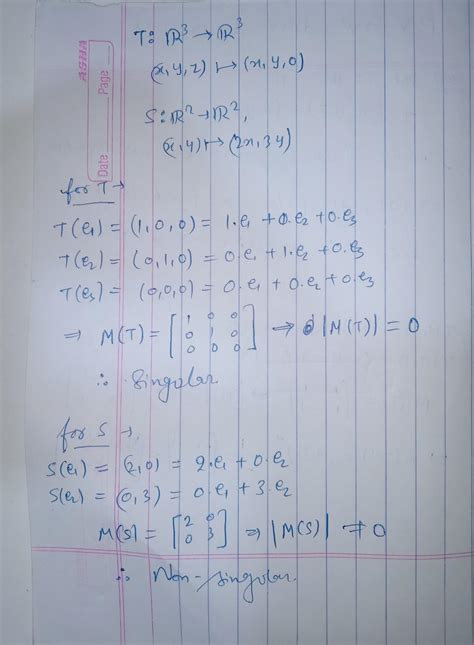 ASHA
Date Page
T: ℝ³ → ℝ³
(x, y, z) ↦ (x, y, 0)
S: ℝ² → ℝ²,
(x, y) ↦ (2x, 3y)
for T →
T(e₁) = (1, 0, 0) = 1·e₁ + 0·e₂ + 0·e₃
T(e₂) = (0, 1, 0) = 0·e₁ + 1·e₂ + 0·e₃
T(e₃) = (0, 0, 0) = 0·e₁ + 0·e₂ + 0·e₃
⇒ M(T) = [1 0 0; 0 1 0; 0 0 0] ⇒ |M(T)| = 0
∴ Singular.
for S →
S(e₁) = (2, 0) = 2·e₁ + 0·e₂
S(e₂) = (0, 3) = 0·e₁ + 3·e₂
M(S) = [2 0; 0 3] ⇒ |M(S)| ≠ 0
∴ Non-singular.